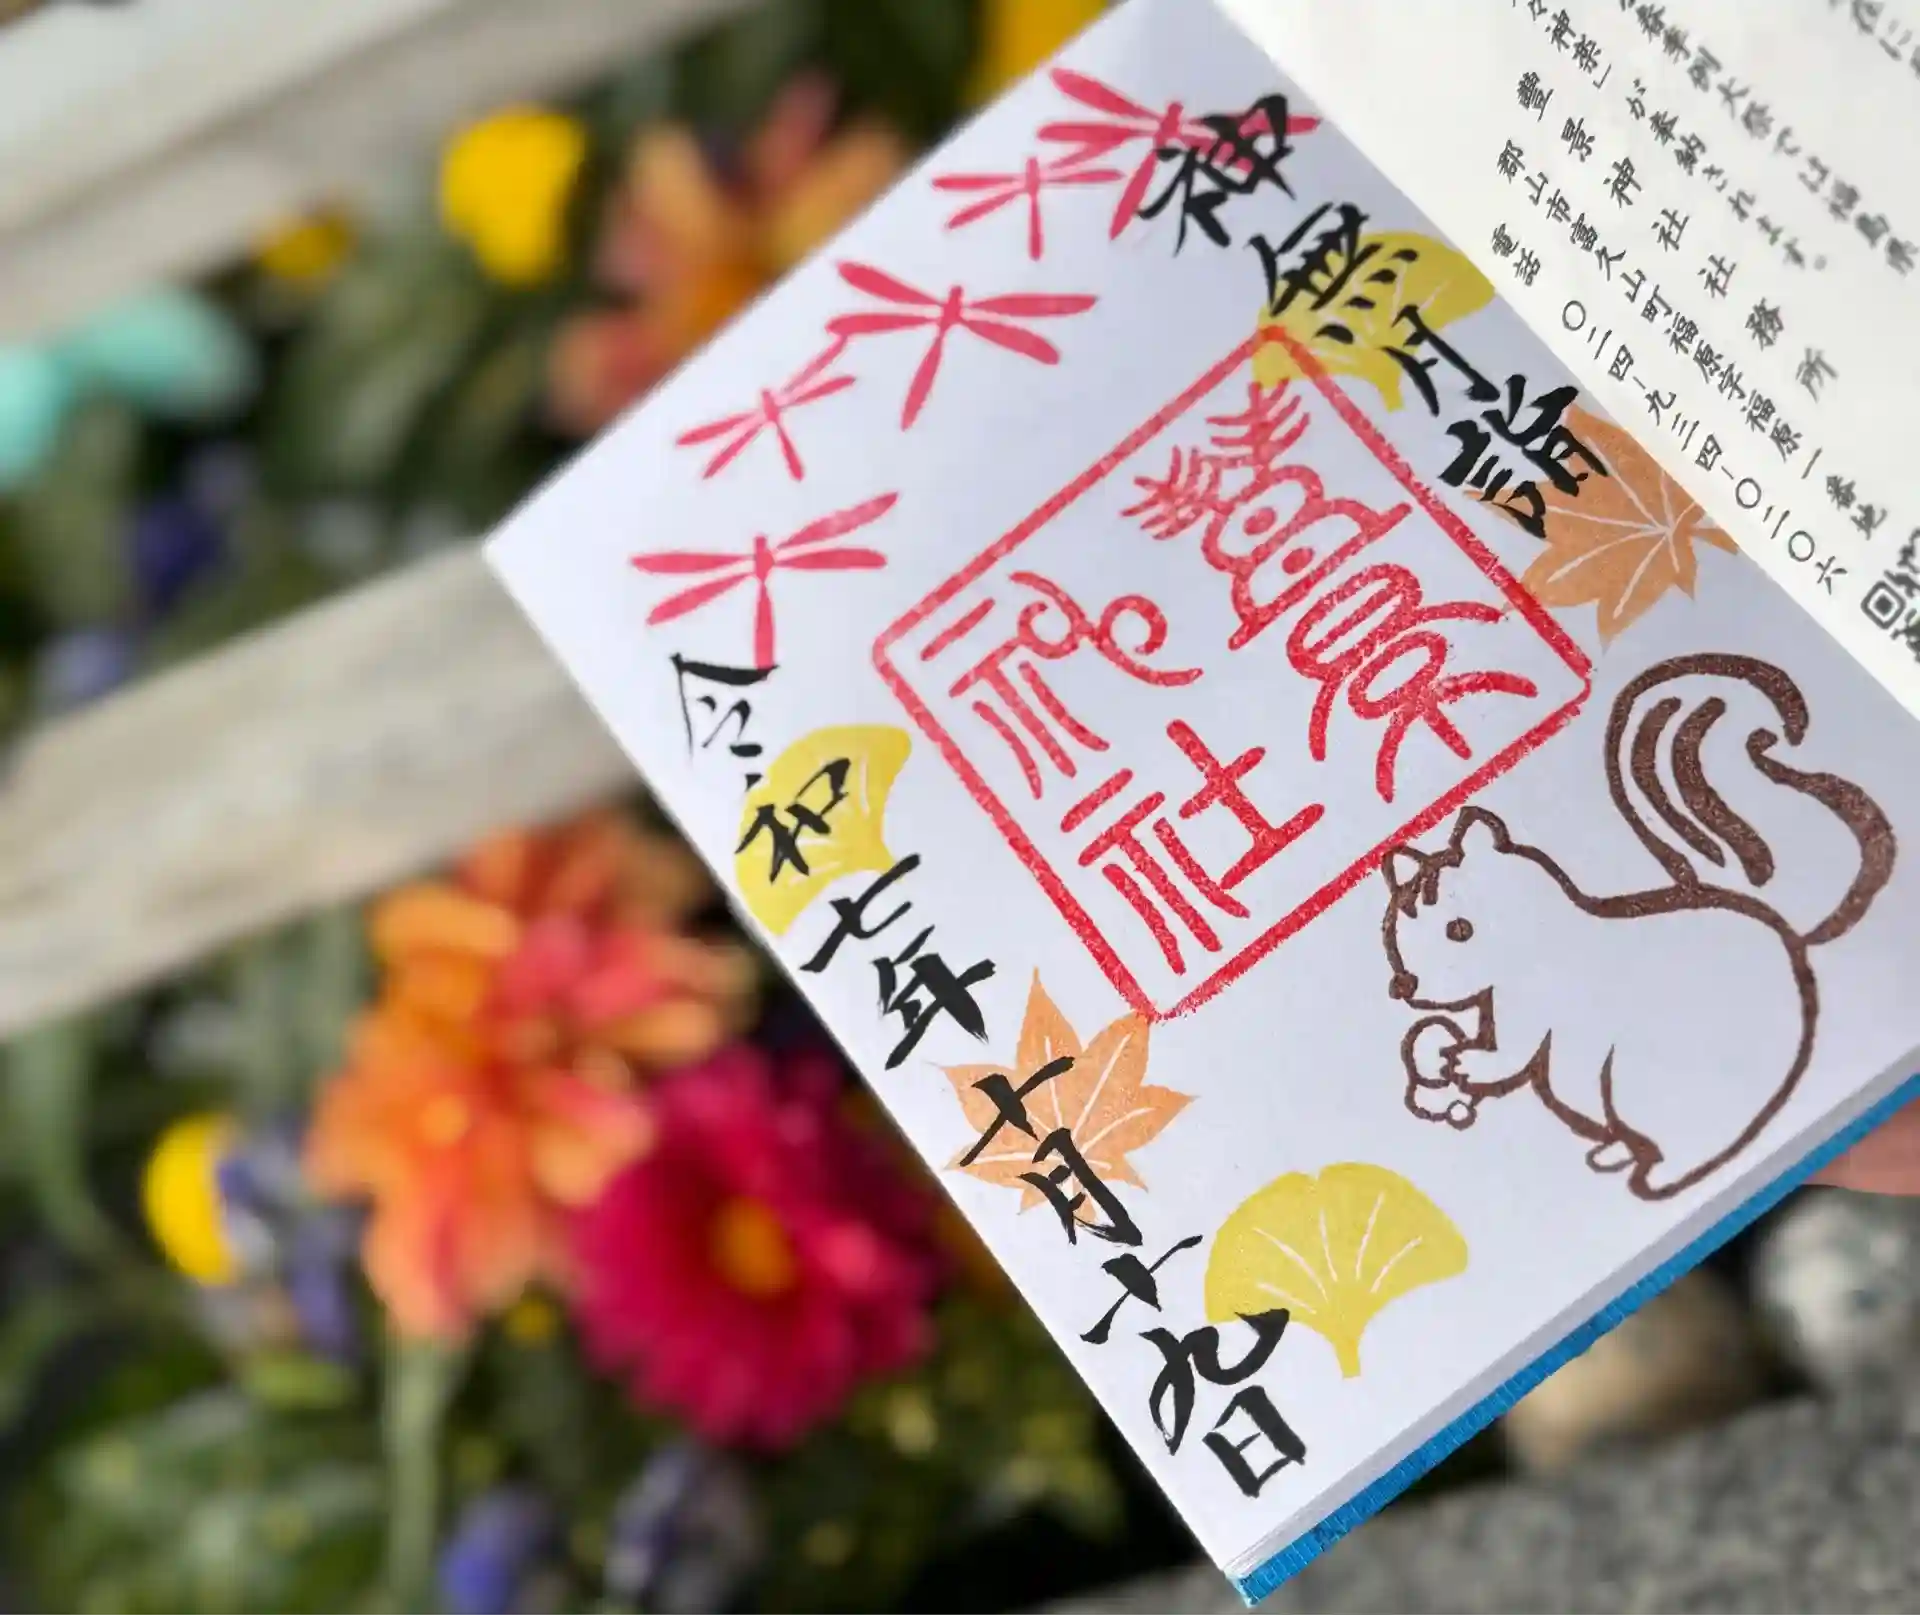 春季例大祭では福島県
神楽」が奉納されます。
豊景神社社務所
郡山市富久山町福原字福原一番地
電話 〇二四-九三四-〇二〇六
神無月詣
豊景神社
令和七年十月十九日